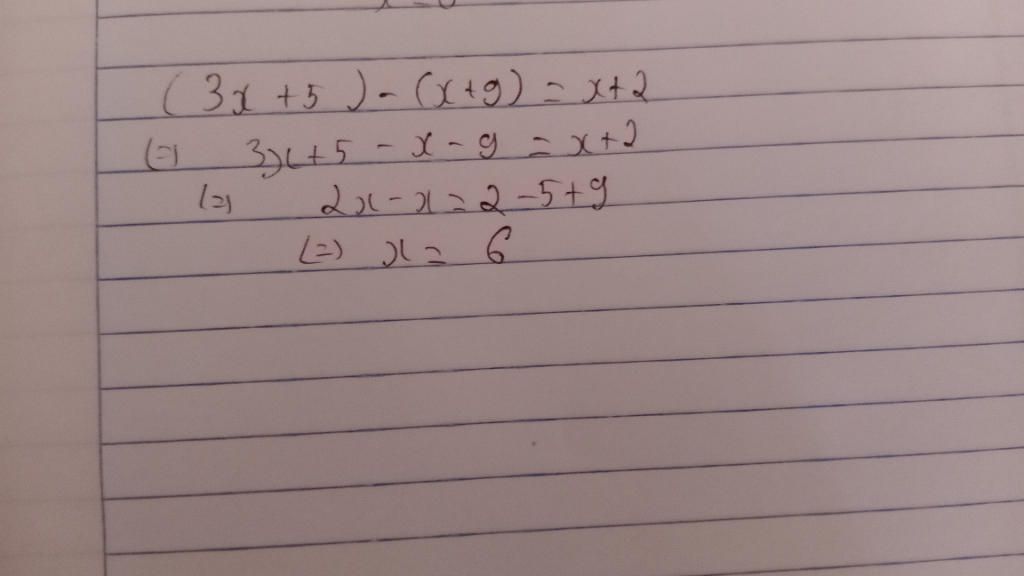 (3x+5)-(x+9)=x+2
(=) 3x+5-x-9=x+2
(=) 2x-x=2-5+9
(=) x=6